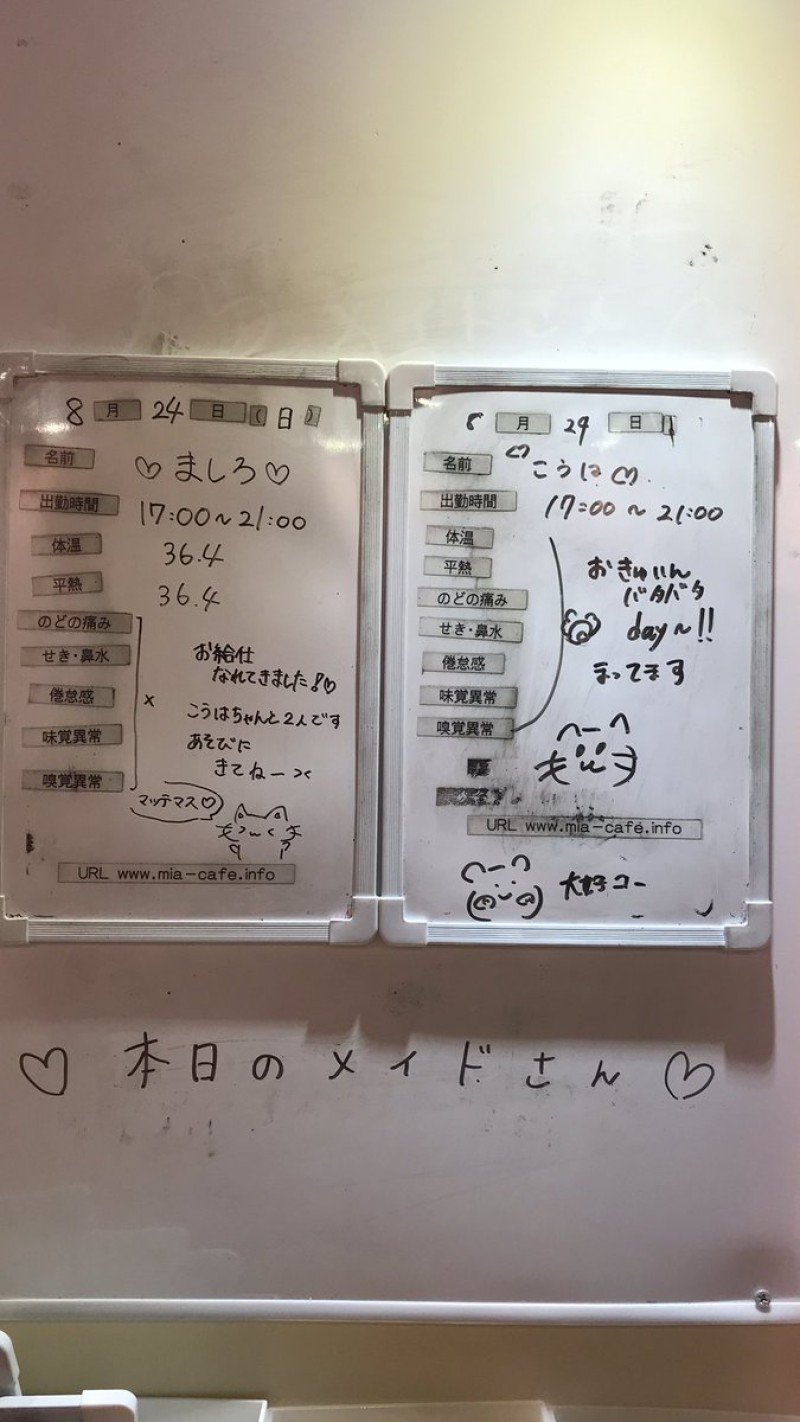 8月24日(日)
名前 ♡ましろ♡
出勤時間 17:00~21:00
体温 36.4
平熱 36.4
のどの痛み
せき・鼻水
倦怠感
味覚異常
嗅覚異常
×
お給仕
なれてきました!♡
こうはちゃんと2人です
あそびに
きてねー
マッテマス♡
URL www.mia-cafe.info
8月24日
名前 ♡こうは♡
出勤時間 17:00~21:00
体温
平熱
のどの痛み
せき・鼻水
倦怠感
味覚異常
嗅覚異常
おきゅいん
バタバタ
day~!!
まってます
URL www.mia-cafe.info
大好コー
♡本日のメイドさん♡